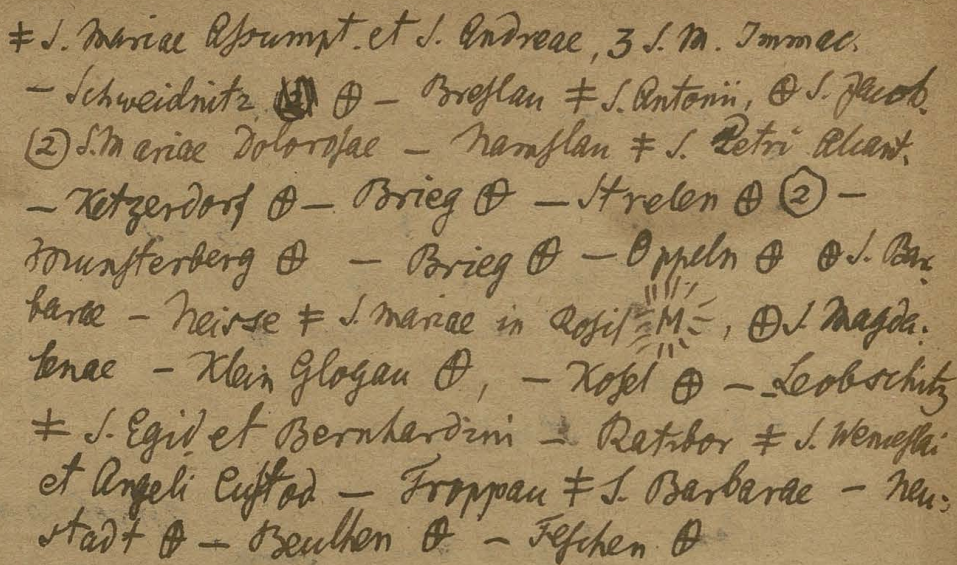 ‡ S. Mariae Aſsumpt. et S. Andreae, 3 S. M. Immac.
– Schweidnitz ⊕ – Breſlau ‡ S. Antonii, ⊕ S. Jacob.
② S. Mariae Doloroſae – Namſlau ‡ S. Petri Alcant.
– Ketzerdorf ⊕ – Brieg ⊕ – Strelen ⊕ ② –
Munſterberg ⊕ – Brieg ⊕ – Oppeln ⊕ ⊕ S. Bar:
barae – Neisse ‡ S. Mariae in Roſis M, ⊕ S. Magda:
lenae – Klein Glogau ⊕, – Koſel ⊕ – Leobschitz
‡ S. Egid. et Bernhardini – Ratibor ‡ S. Wenceſlai
et Angeli Cuſtod – Troppau ‡ S. Barbarae – Neu:
stadt ⊕ – Beuthen ⊕ – Teſchen ⊕